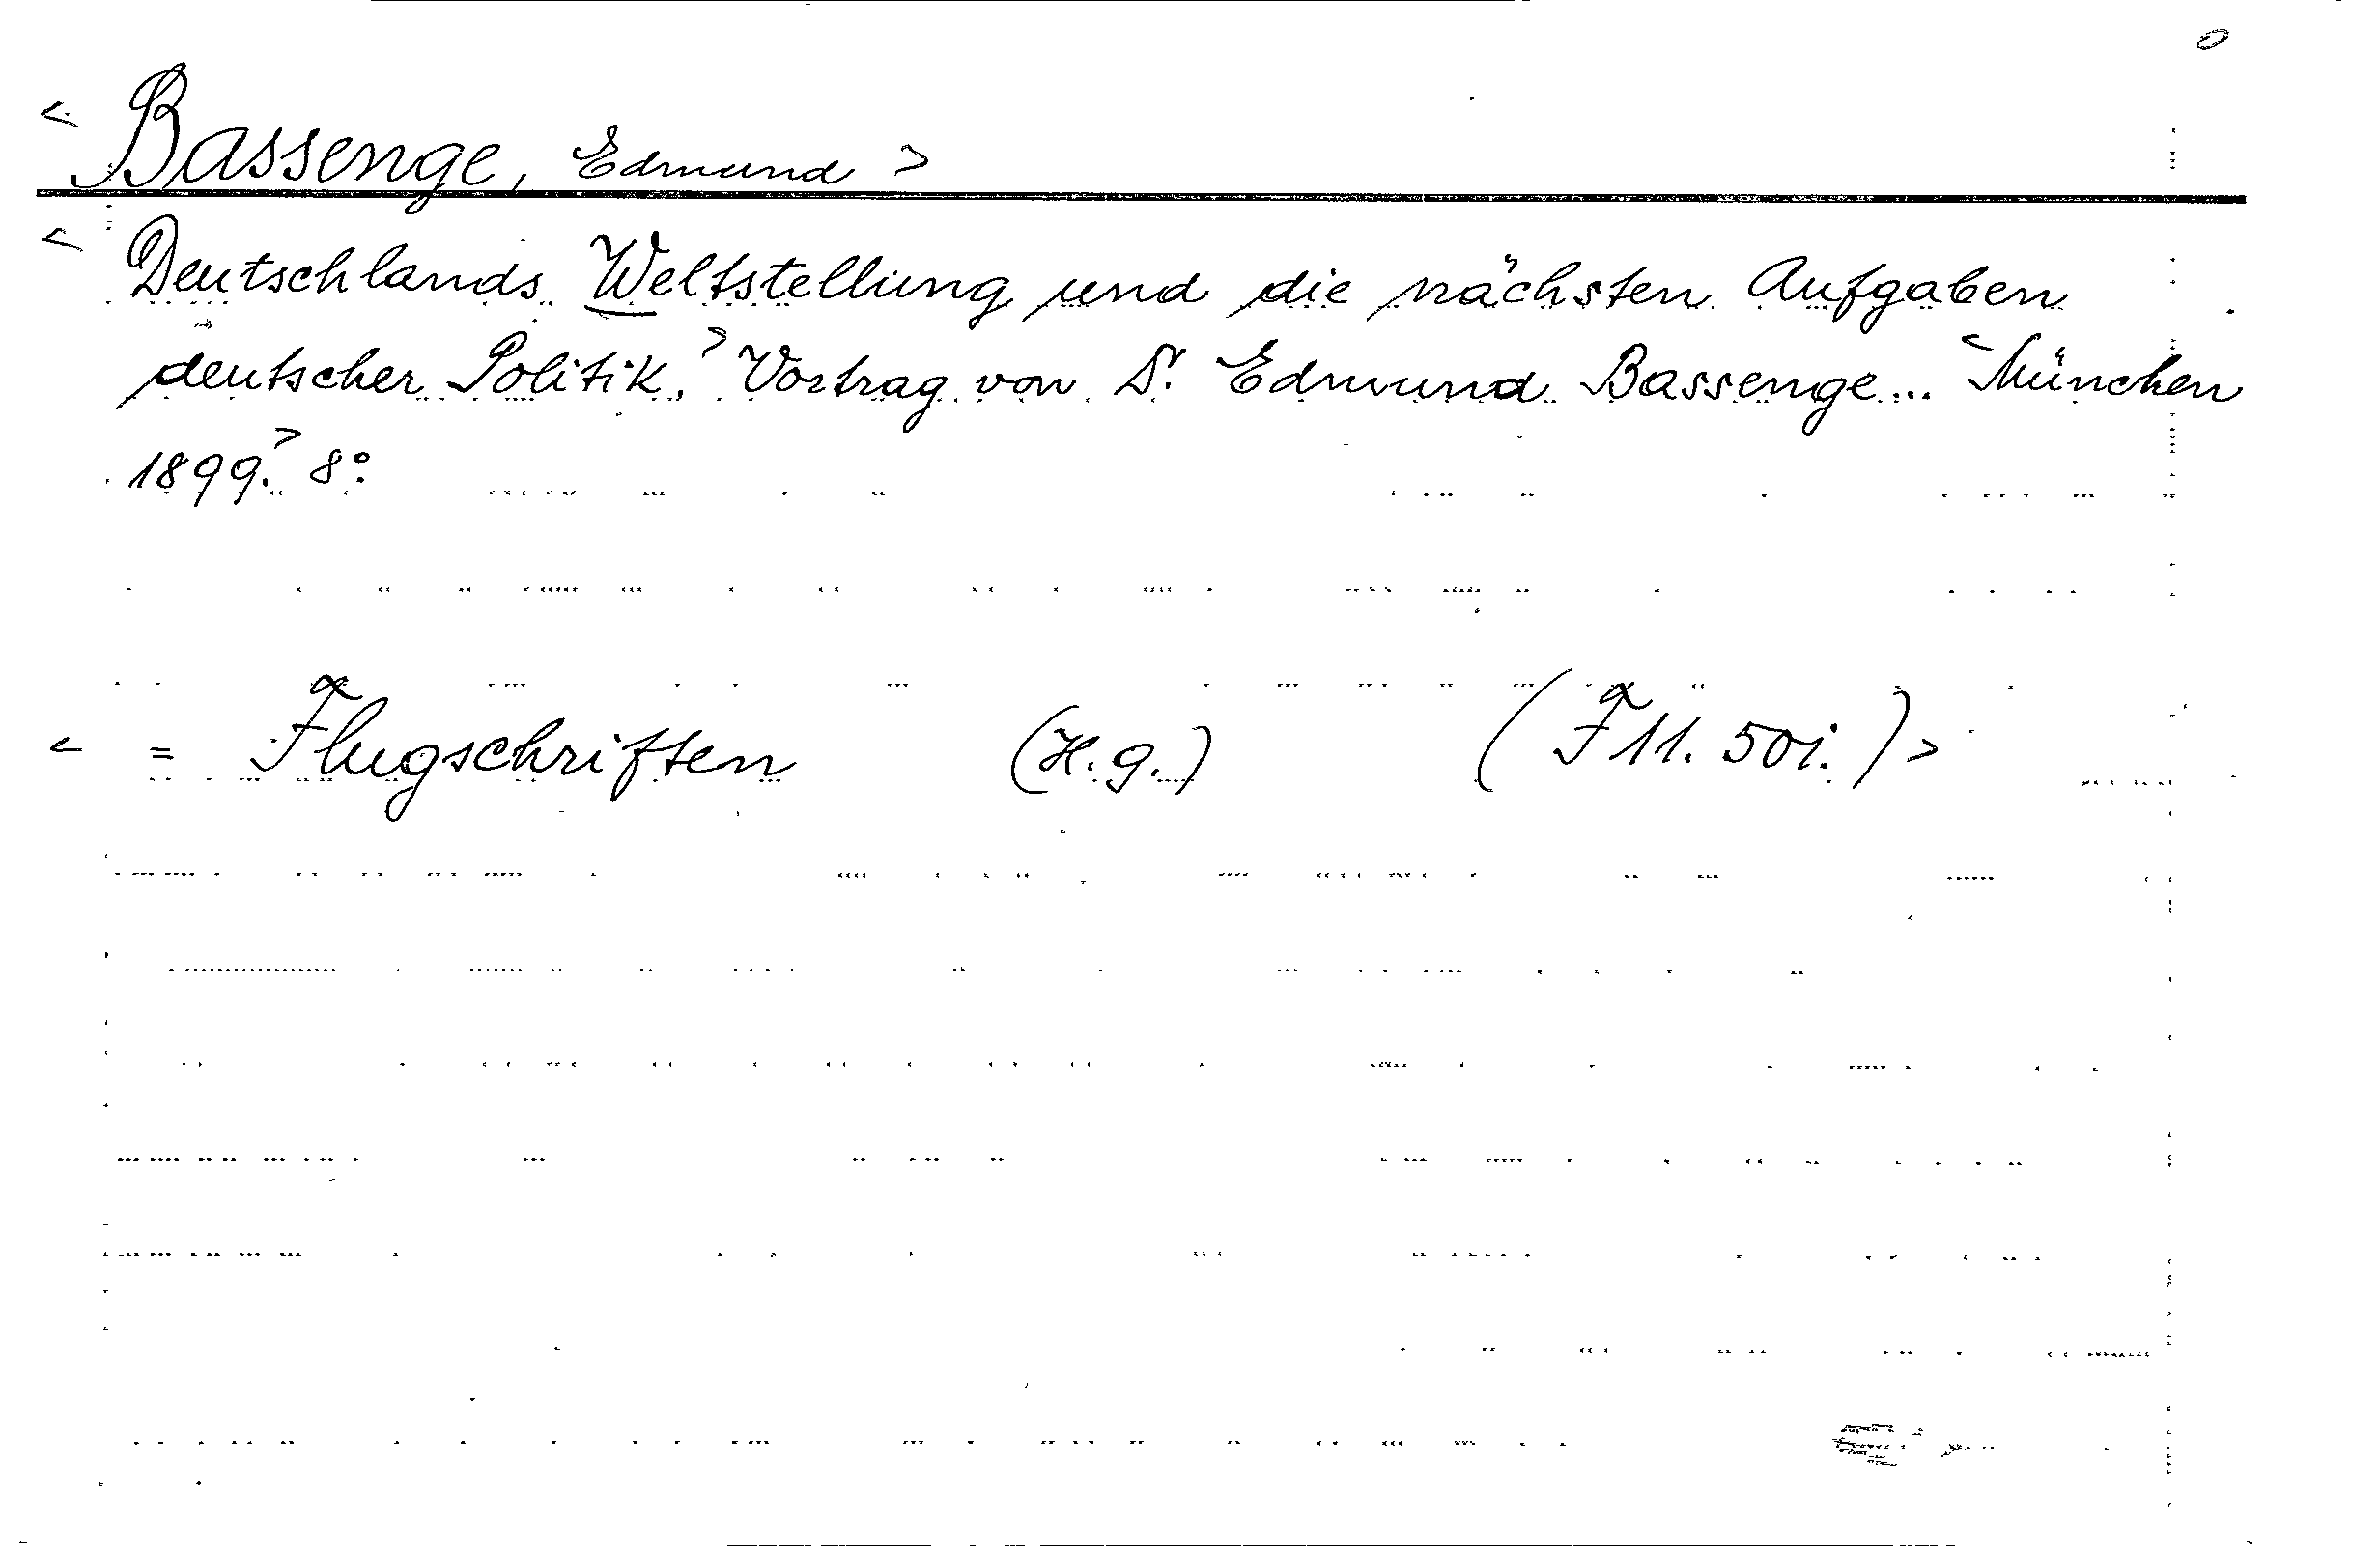 < Bassenge, Edmund >
< Deutschlands Weltstellung und die nächsten Aufgaben
deutscher Politik.> Vortrag von Dr. Edmund Bassenge... <München
1899.> 8°.
< = Flugschriften (H.g.) (F 11. 50i.) >